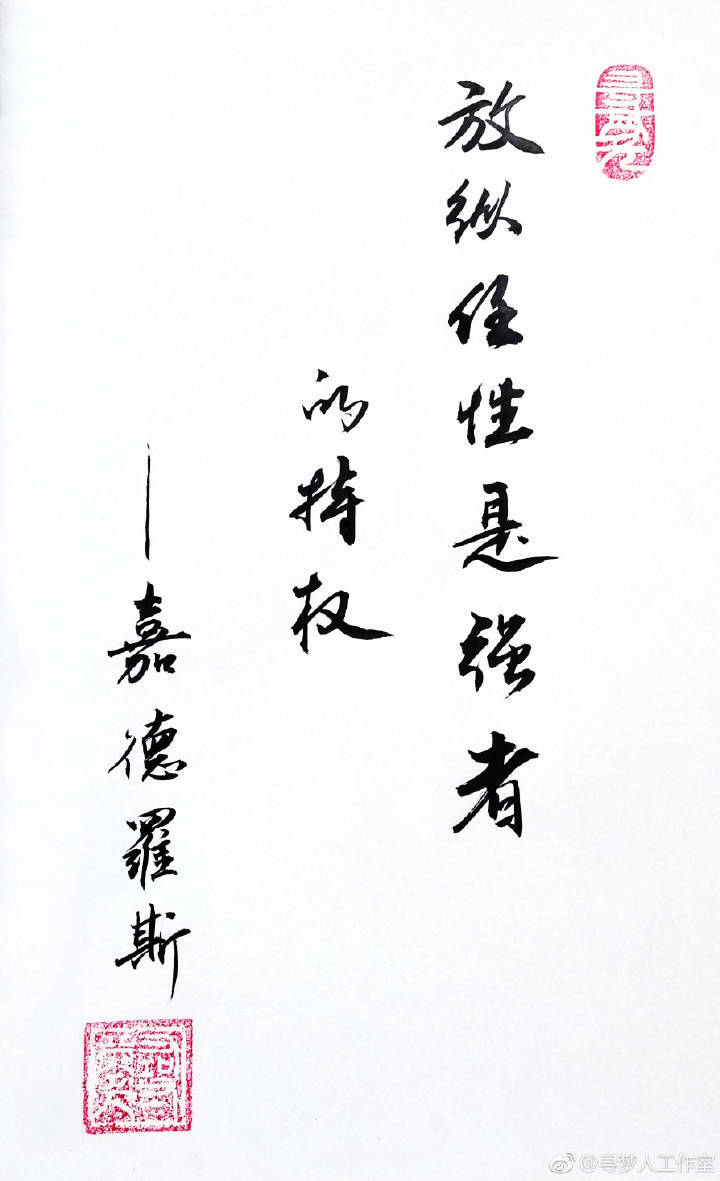 放纵任性是强者
的特权
—嘉德羅斯
@寻梦人工作室